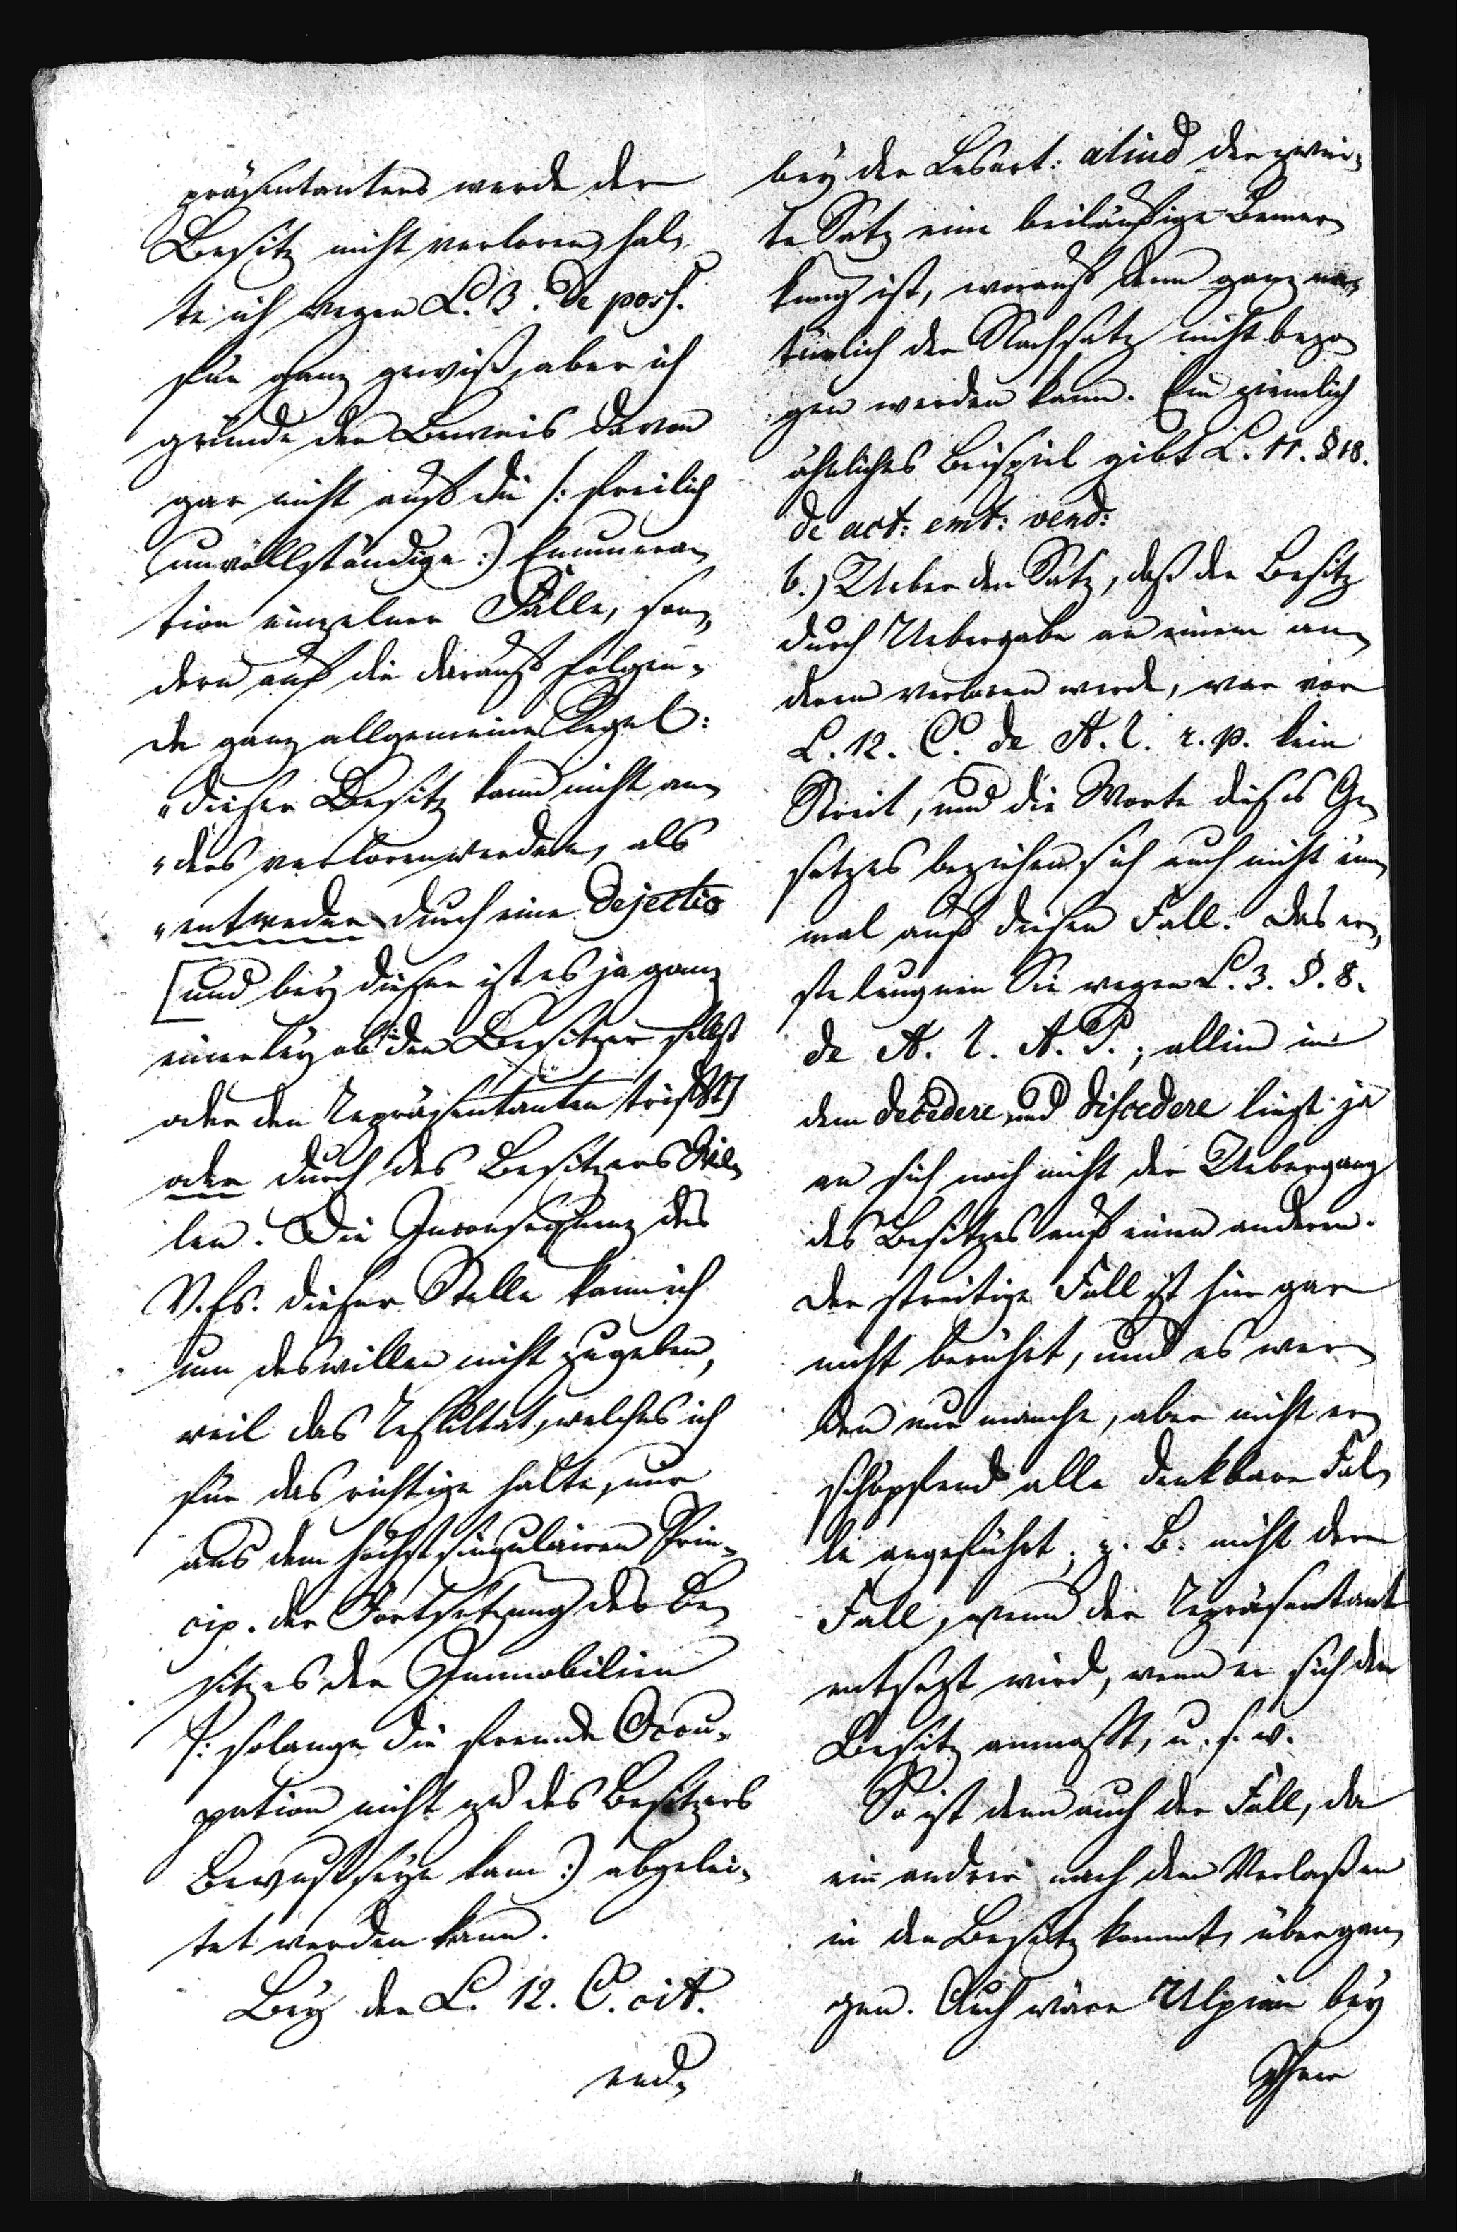 präsentanten werde der
Besitz nicht verloren, hal-
te ich wegen L. 3. de poss.
für ganz gewiß, aber ich
gründe den Beweis davon
gar nicht auf die /: freilich
unvollständige :/ Enumera-
tion einzelner Fälle, son-
dern auf die darauf folgen-
de ganz allgemeine Regel:
„dieser Besitz kann nicht an-
„ders verloren werden, als
„entweder durch eine dejectio
[und bey dieser ist es ja ganz
einerley ob sie den Besitzer selbst
oder den Repräsentanten trifft]
oder durch des Besitzers Wil-
len. Die Inconsequenz des
V.fs. dieser Stelle kann ich
um deswillen nicht zugeben,
weil das Resultat, welches ich
für das richtige halte, nur
aus dem höchst singulairen Prin-
cip. der Fortsetzung des Be-
sitzes der Immobilien
/: solange die fremde Occu-
pation nicht zu des Besitzers
Bewustseyn kam :/ abgelei-
tet werden kann.
Bey der L. 12. C. cit.
end-
bey der Lesart: aliud der zwei-
te Satz eine beiläufige Bemer-
kung ist, worauf denn ganz na-
türlich der Nachsatz nicht bezo-
gen werden kann. Ein ziemlich
ähnliches Beispiel gibt L. 11. § 18.
de act: emt: vend:
b.) Ueber den Satz, daß der Besitz
durch Uebergabe an einem an-
deren verloren werde, war vor
L. 12. C. de A. l. r. p. kein
Streit, und die Worte dieses Ge-
setzes beziehen sich auch nicht ein-
mal auf diesen Fall. Das er-
ste leugnen Sie wegen L. 3. §. 8.
de A. l. A. P.; allein in
dem decedere und discedere liegt ja
an sich noch nicht der Uebergang
des Besitzes auf einen anderen.
Der streitige Fall ist hier gar
nicht berührt, und es wer-
den nur manche, aber nicht er-
schöpfend alle denkbare Fäl-
le angeführt, z. B. nicht der
Fall, wenn der Repräsentant
entsezt wird, wenn er sich den
Besitz anmaßt, u. s. w.
So ist denn auch der Fall, da
ein andrer nach dem Verlaßen
in den Besitz kommt, übergan-
gen. Auch wäre Ulpian bey
Ihrer